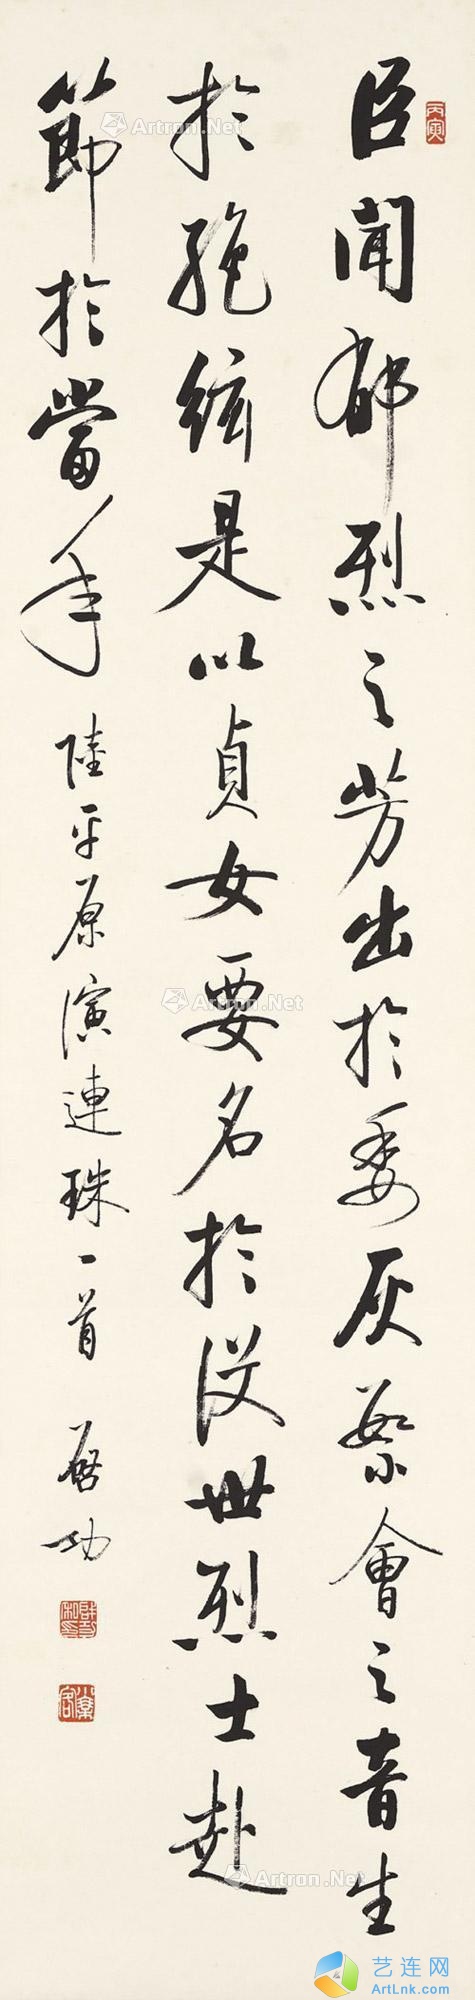 丙寅
臣聞郁烈之芳出於委灰繁會之音生
於絕絃是以貞女要名於没世烈士赴
節於當年
陸平原演連珠一首 啓功
Artron.Net
Artron.Net
Artron.Net
Artron.Net
Artron.Net
Artron.Net
艺连网
ArtLnk.com